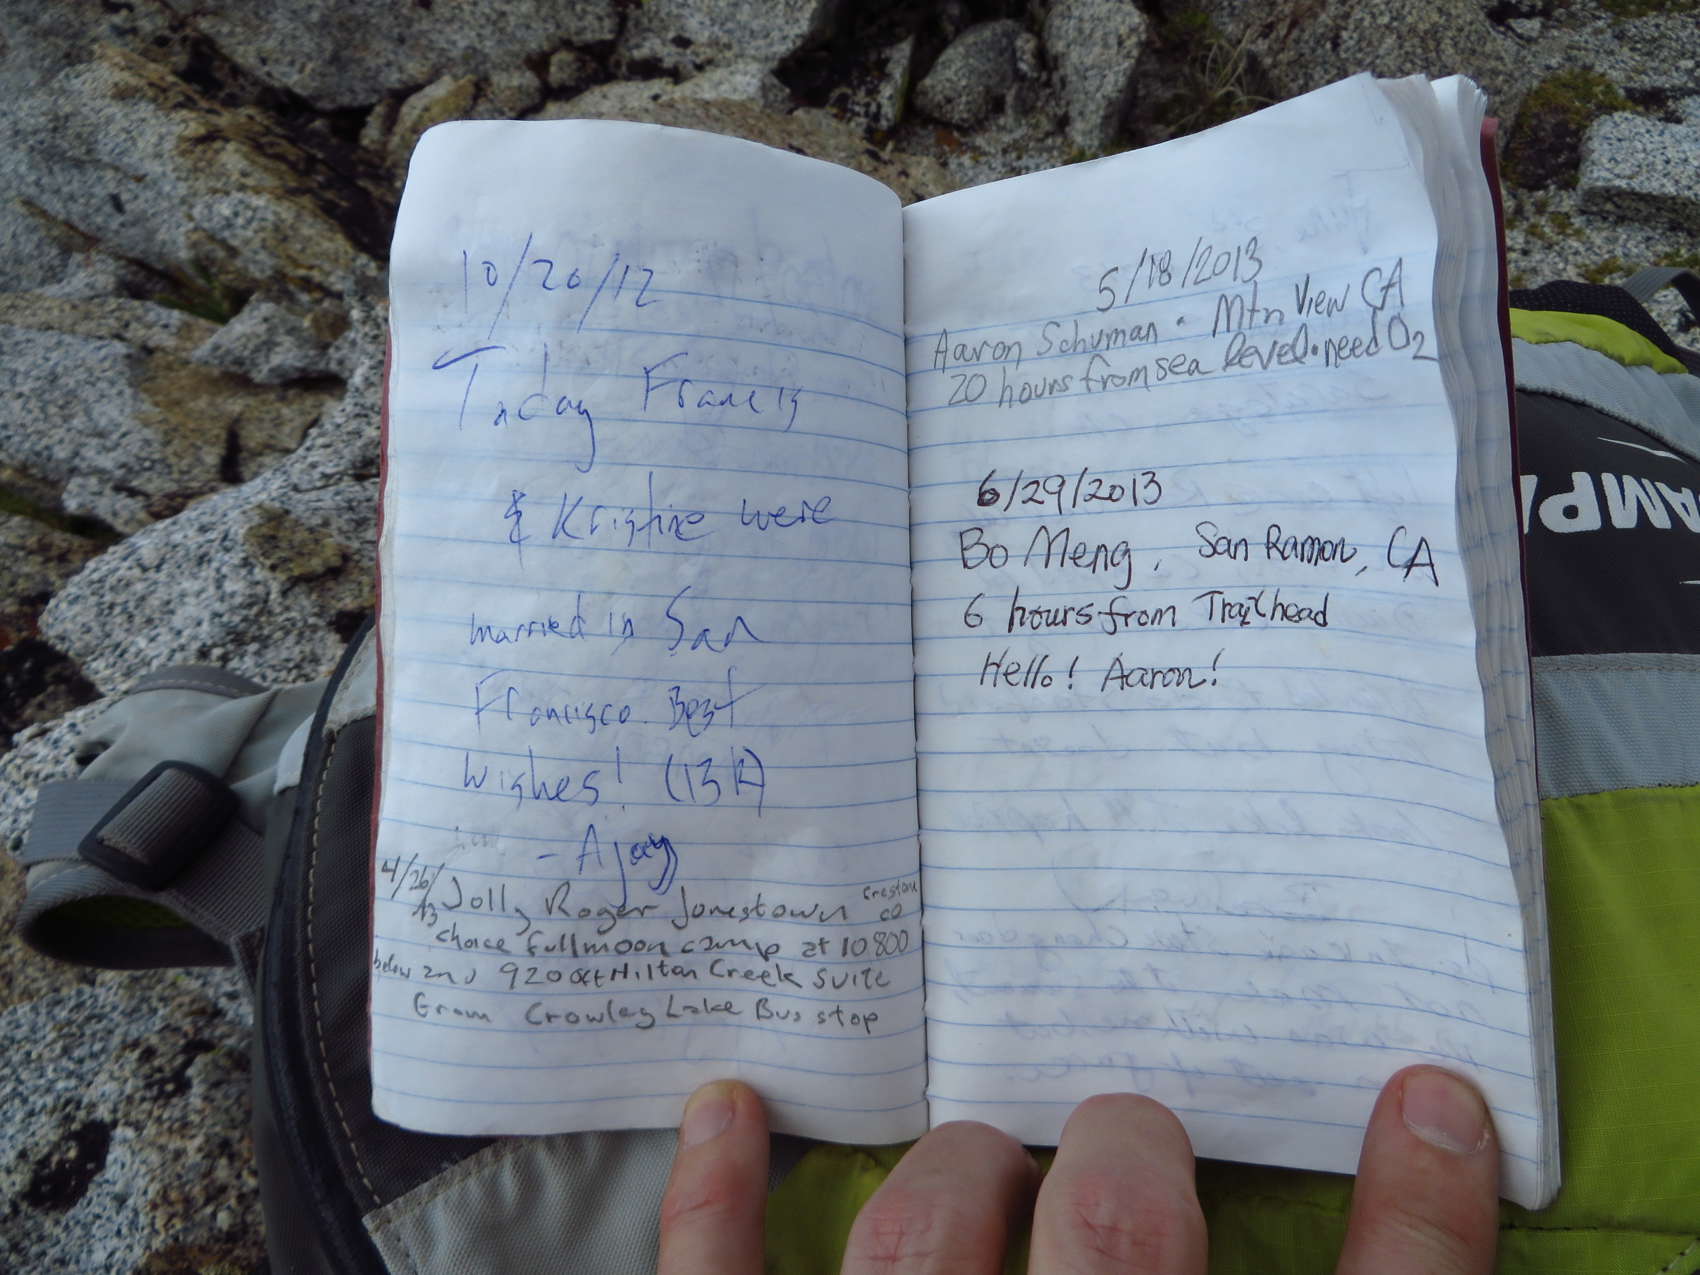 10/20/12
Today Francis
& Kristine were
married in San
Francisco. Best
Wishes! (13k)
- Ajay
4/26/13 Jolly Roger Jonestown Creston CO
choice full moon camp at 10 800
below and 9200ft Hilton Creek Suite
From Crowley Lake Bus stop
5/18/2013
Aaron Schuman • Mtn View CA
20 hours from sea level • need O2
6/29/2013
Bo Meng, San Ramon, CA
6 hours from Trailhead
Hello! Aaron!
CAMP